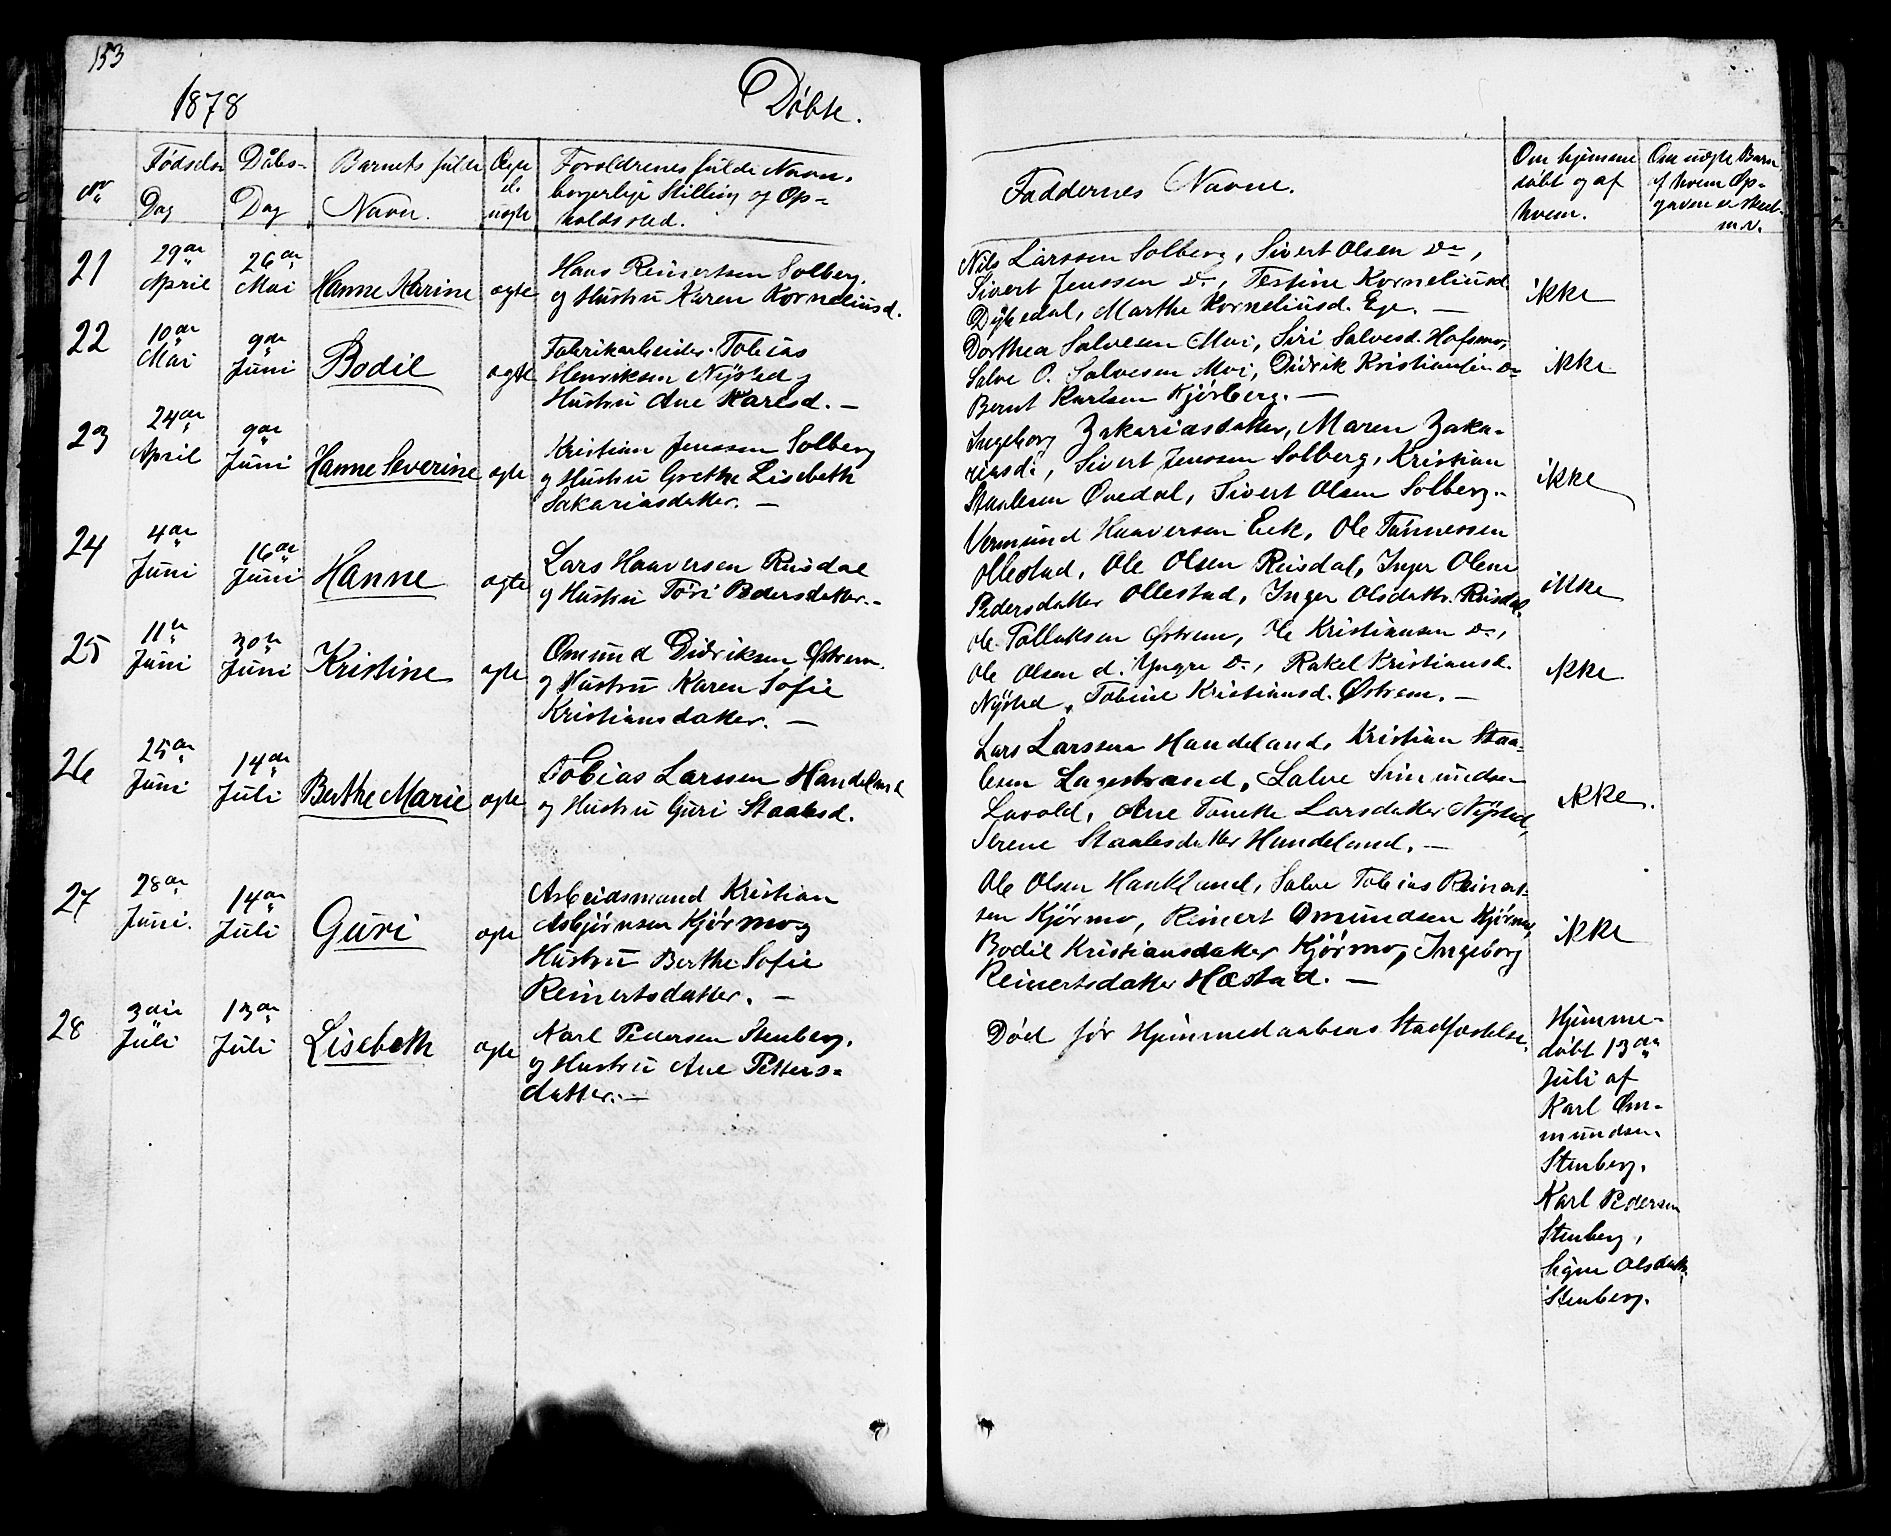 153
1878
Døbte.
No
Fødsels-
Dag
Dåbs-
Dag
Barnets fulde
Navn.
Ægte
el.
uægte
Foreldrenes fulde Navn,
borgerlige Stilling og Op-
holdssted.
Faddernes Navne.
Om hjemme
døbt og af
hvem.
Om uægte Barn,
af hvem Op-
gaven er skeet
m.v.
21
29de
April
26de
Mai
Hanne Karine
ægte
Hans Reinertsen Solberg.
og Hustru Karen Korneliusd.
Nils Larssen Solberg, Sivert Olsen do,
Sivert Jenssen do, Testine Korneliusd.
Marthe Korneliusd. Ege. —
ikke
22
10de
Mai
9de
Juni
Bodil
ægte
Fabrikarbeider Tobias
Henriksen Nÿsted og
Hustru Ane Karlsd. —
Dorthea Salvesen Moi, Siri Salvesd. Hafsmo,
Salve O. Salvesen Moi, Didrik Kristiansen do
Bernt Karlsen Kjørberg. —
ikke
23
24de
April
9de
Juni
Hanne Severine
ægte
Kristian Jenssen Solberg
og Hustru Grethe Lisebeth
Sakariasdatter. —
Ingeborg Zakariasdatter, Maren Zaka-
riasd., Sivert Jenssen Solberg, Kristian
Staalesen Øvedal, Sivert Olsen Solberg.
ikke
24
4de
Juni
16de
Juni
Hanne
ægte
Lars Haaversen Rusdal
og Hustru Tøri Pedersdatter.
Vermund Haaversen Eek, Ole Tønnessen
Ollestad, Ole Olsen Rusdal, Inger Olene
Pedersdatter Ollestad, Inger Olsdattr. Rusdal.
ikke
25
11te
Juni
30te
Juni
Kristine
ægte
Omund Didriksen Østrem.
og Hustru Karen Sofie
Kristiansdatter. —
Ole Tollaksen Østrem, Ole Kristiansen do,
Ole Olsen d. Yngre do, Rakel Kristiansd.
Nÿsted, Tobine Kristiansd. Østrem. —
ikke
26
25de
Juni
14de
Juli
Berthe Marie
ægte
Tobias Larssen Handeland
og Hustru Guri Staalesd.
Lars Larssen Handeland, Kristian Staa-
lesen Lagestrand, Salve Simundsen
Lavold, Ane Tonette Larsdatter Nÿsted,
Serene Staalesdatter Handeland. —
ikke.
27
28de
Juni.
14de
Juli
Guri
ægte
Arbeidsmand Kristian
Asbjørnsen Kjørmo og
Hustru Berthe Sofie
Reinertsdatter. —
Ole Olsen Haukland, Salve Tobias Reinert-
sen Kjørmo, Reinert Omundsen Kjørmo,
Bodil Kristiansdatter Kjørmo, Ingeborg
Reinertsdatter Hæstad. —
ikke
28
3die
Juli
13de
Juli
Lisebeth
ægte
Karl Pedersen Stenberg.
og Hustru Ane Petters-
datter. —
Død før Hjemmedaabens Stadfæstelse.
Hjemme-
døbt 13de
Juli af
Karl Om-
mundsen.
Stenberg.
Karl Pedersen
Stenberg,
Signe Olsdatt.
Stenberg.